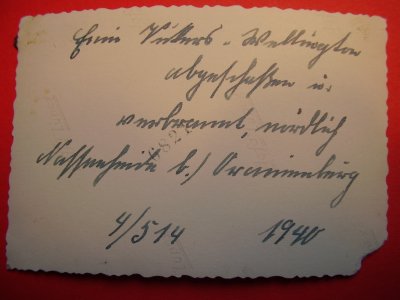 Eine Vikers-Wellington
abgeschoßen u.
verbrannt, nördlich
Nassenheide b./ Oranienburg
4/514 1940